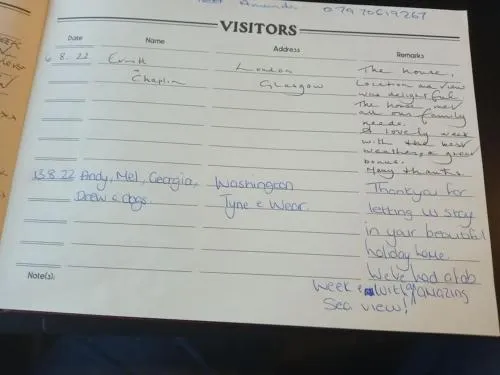 Amanda
VISITORS
Date Name Address Remarks
6.8.22 London The house,
Chaplin Glasgow Location and view
was delightful.
The house met
all our family
needs.
A lovely week
with the best
weather, a great
bonus.
Many thanks.
13.8.22 Andy, Mel, Georgia, Washington Thankyou for
Drew & dogs. Tyne & Wear. letting us stay
in your beautiful
holiday home.
We've had a fab
week & with amazing
Sea view!
Note(s):